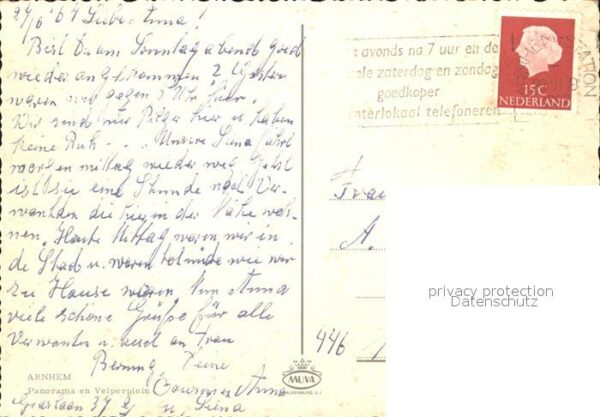 27/6 '67 Liebe Anna!
Bist Du am Sonntag abend good
wieder angekommen? Gestern
waren wir gegen 7 Uhr hier.
Wir sind nur Pilger hier u. haben
keine Ruh - . . . Unsere Lena fährt
morgen mittag wieder weg. Jetzt
ist sie eine Stunde nach Ver-
wandten die hier in der Nähe woh-
nen. Heute Mittag waren wir in
de Stad u. waren todmüde wie wir
zu Hause waren. Nun Anna
viele schöne Grüße für alle
Verwandten u. auch an Frau
Deine
Cousine Anna
u. Lena
ARNHEM
Panorama en Velperplein
MUVA
VALKENBURG
's avonds na 7 uur en de
hele zaterdag en zondag
goedkoper
interlokaal telefoneren
STATION
15 C
NEDERLAND
Frau
A.
446
privacy protection
Datenschutz